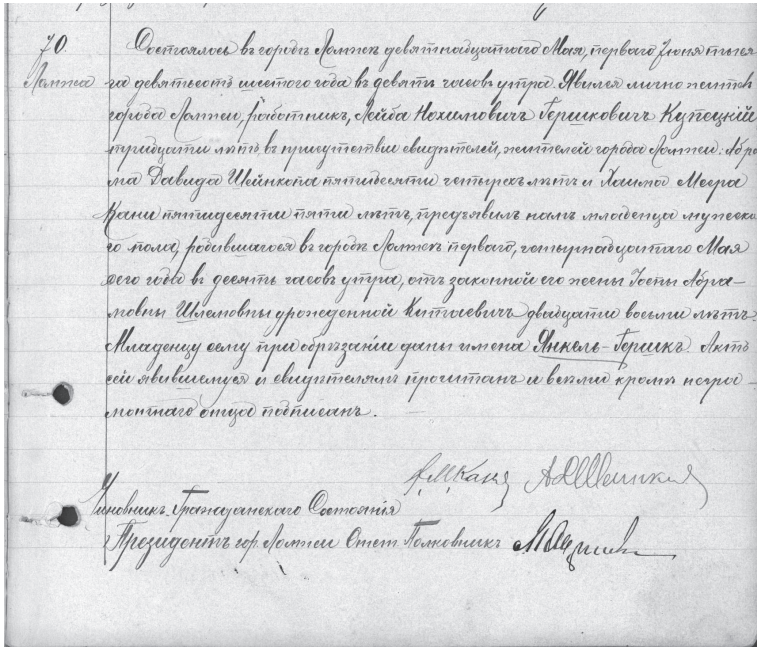 70.
Ломжа
Состоялось въ городѣ Ломжѣ девятнадцатаго Мая, перваго Іюня тыся
ча девятьсотъ шестого года въ девять часовъ утра. Явился лично житель
города Ломжи, работникъ, Лейба Нохимовичъ Гершковичъ Купецкій
тридцати лѣтъ, въ присутствіи свидѣтелей, жителей города Ломжи: Абра
ма Давида Шейнкопа пятидесяти четырехъ лѣтъ и Хаима Меера
Кани пятидесяти пяти лѣтъ, предъявилъ намъ младенца мужеска
го пола, родившагося въ городѣ Ломжѣ перваго, четырнадцатаго Мая
сего года въ десять часовъ утра, отъ законной его жены Абра-
мовны Шлемовны урожденной двадцати восьми лѣтъ.
Младенцу сему при обрѣзаніи даны имена Янкель-Гершкъ. Актъ
сей явившемуся и свидѣтелямъ прочитанъ и всѣми кромѣ негра
мотнаго отца подписанъ.
Х.М.Каня
Чиновникъ Гражданскаго Состоянія
Президентъ гор. Ломжи Отст. Полковникъ